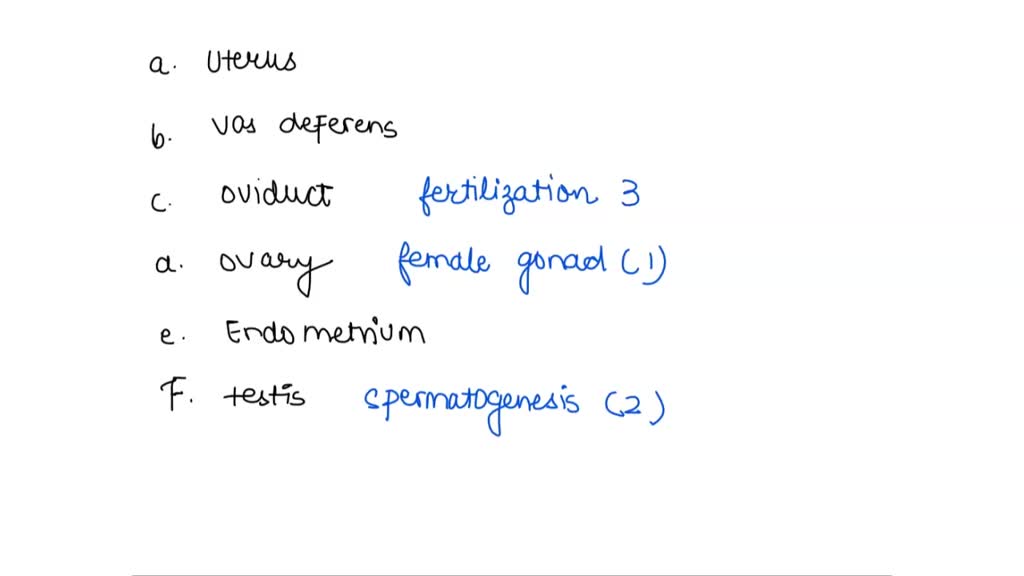 a. Uterus
b. vas deferens
c. oviduct fertilization 3
d. ovary female gonad (1)
e. Endometrium
F. testis spermatogenesis (2)